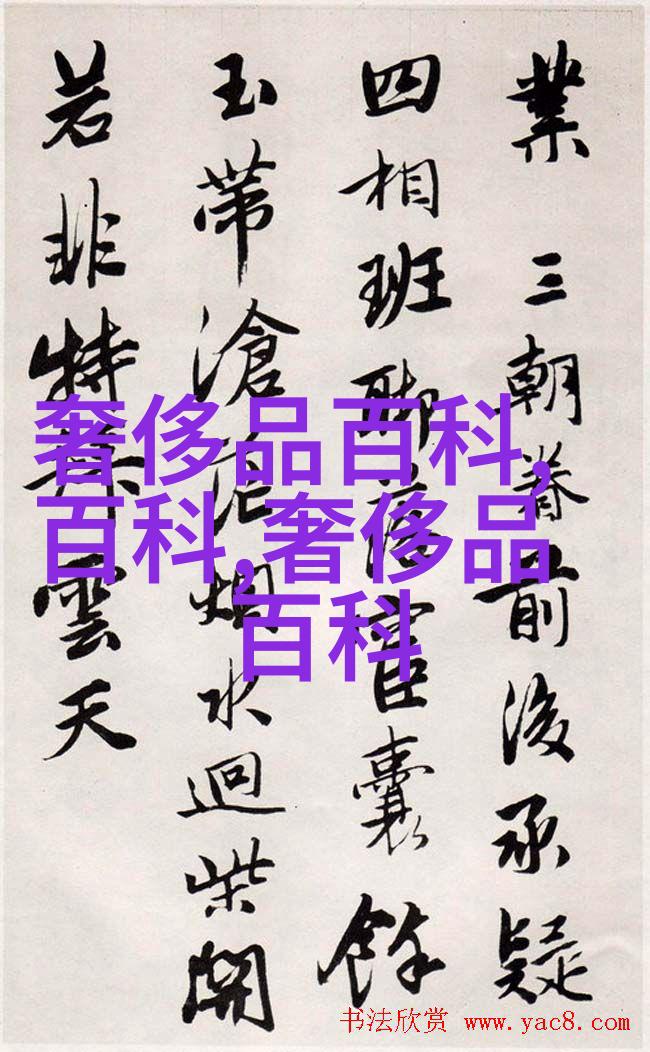 業 三朝眷前後承疑
四相班聯宦囊餘
玉帶滄茫烟水迴柴開
若非特雲天
奢侈品百科,
百科,奢侈品
百科
书法欣赏 www.yac8.com